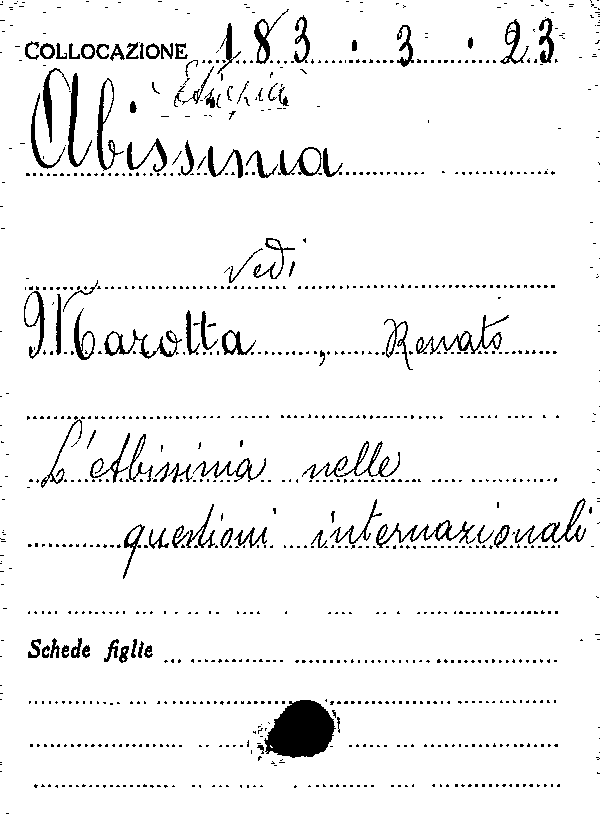 COLLOCAZIONE 183.3.23
Etiopia
Abissinia
vedi
Marotta, Renato
L'Abissinia nelle
questioni internazionali
Schede figlie